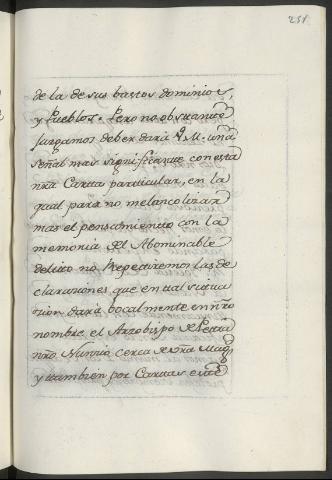 251.
de la de sus bastos dominios,
y Pueblos. Pero no obstante
jusgamos deber dar à V. M. una
señal mas significante con esta
nr̃a Carta particular, en la
qual para no melancolizar
mas el pensamiento con la
memoria del Abominable
delito no Repetiremos las de
claraciones que en tal situa
cion dará bocalmente en nr̃o
nombre el Arzobispo de Petra
nr̃o Nuncio cerca de Vr̃a Magd
y tambien por Cartas este